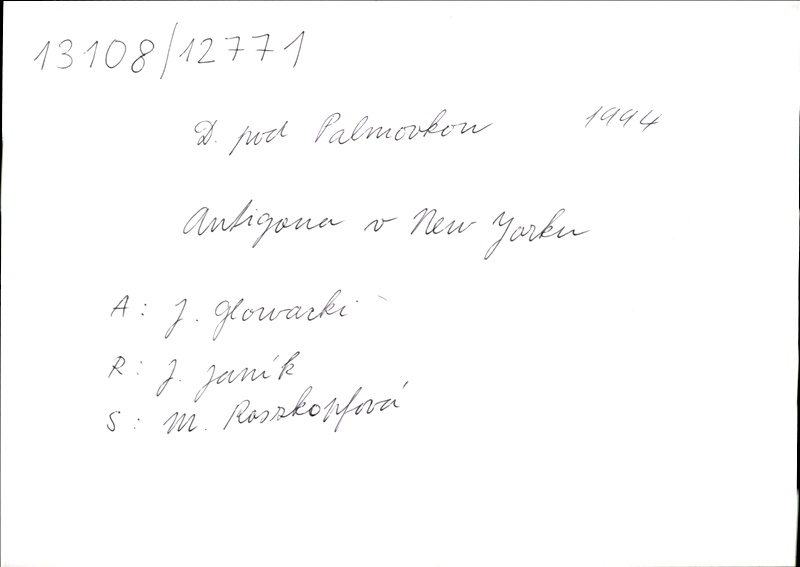 13108/12771
D. pod Palmovkou 1994
Antigona v New Yorku
A: J. Glowacki
R: J. Janík
S: M. Roszkopfová